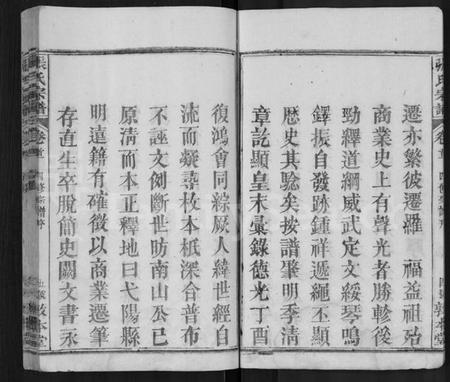 遷亦繁彼遷羅　福益祖殆
商業史上有聲光者勝軫後
勁釋道綱威武定文綏琴鳴
鐸振自發跡鍾祥遞繩丕顯
歷史其騐矣按譜肇明季清
章訖顯皇末彙錄德光丁酉
復鴻會同綜厥人緯世經自
流而凝尋枚本柢深合普布
不誣文例斷世昉南山公已
原清而本正釋地曰弋陽縣
明遠籍有確徵以商業遷筆
存直生卒脫簡史闕文書永
張氏宗譜 卷首 四修宗譜序 敦本堂